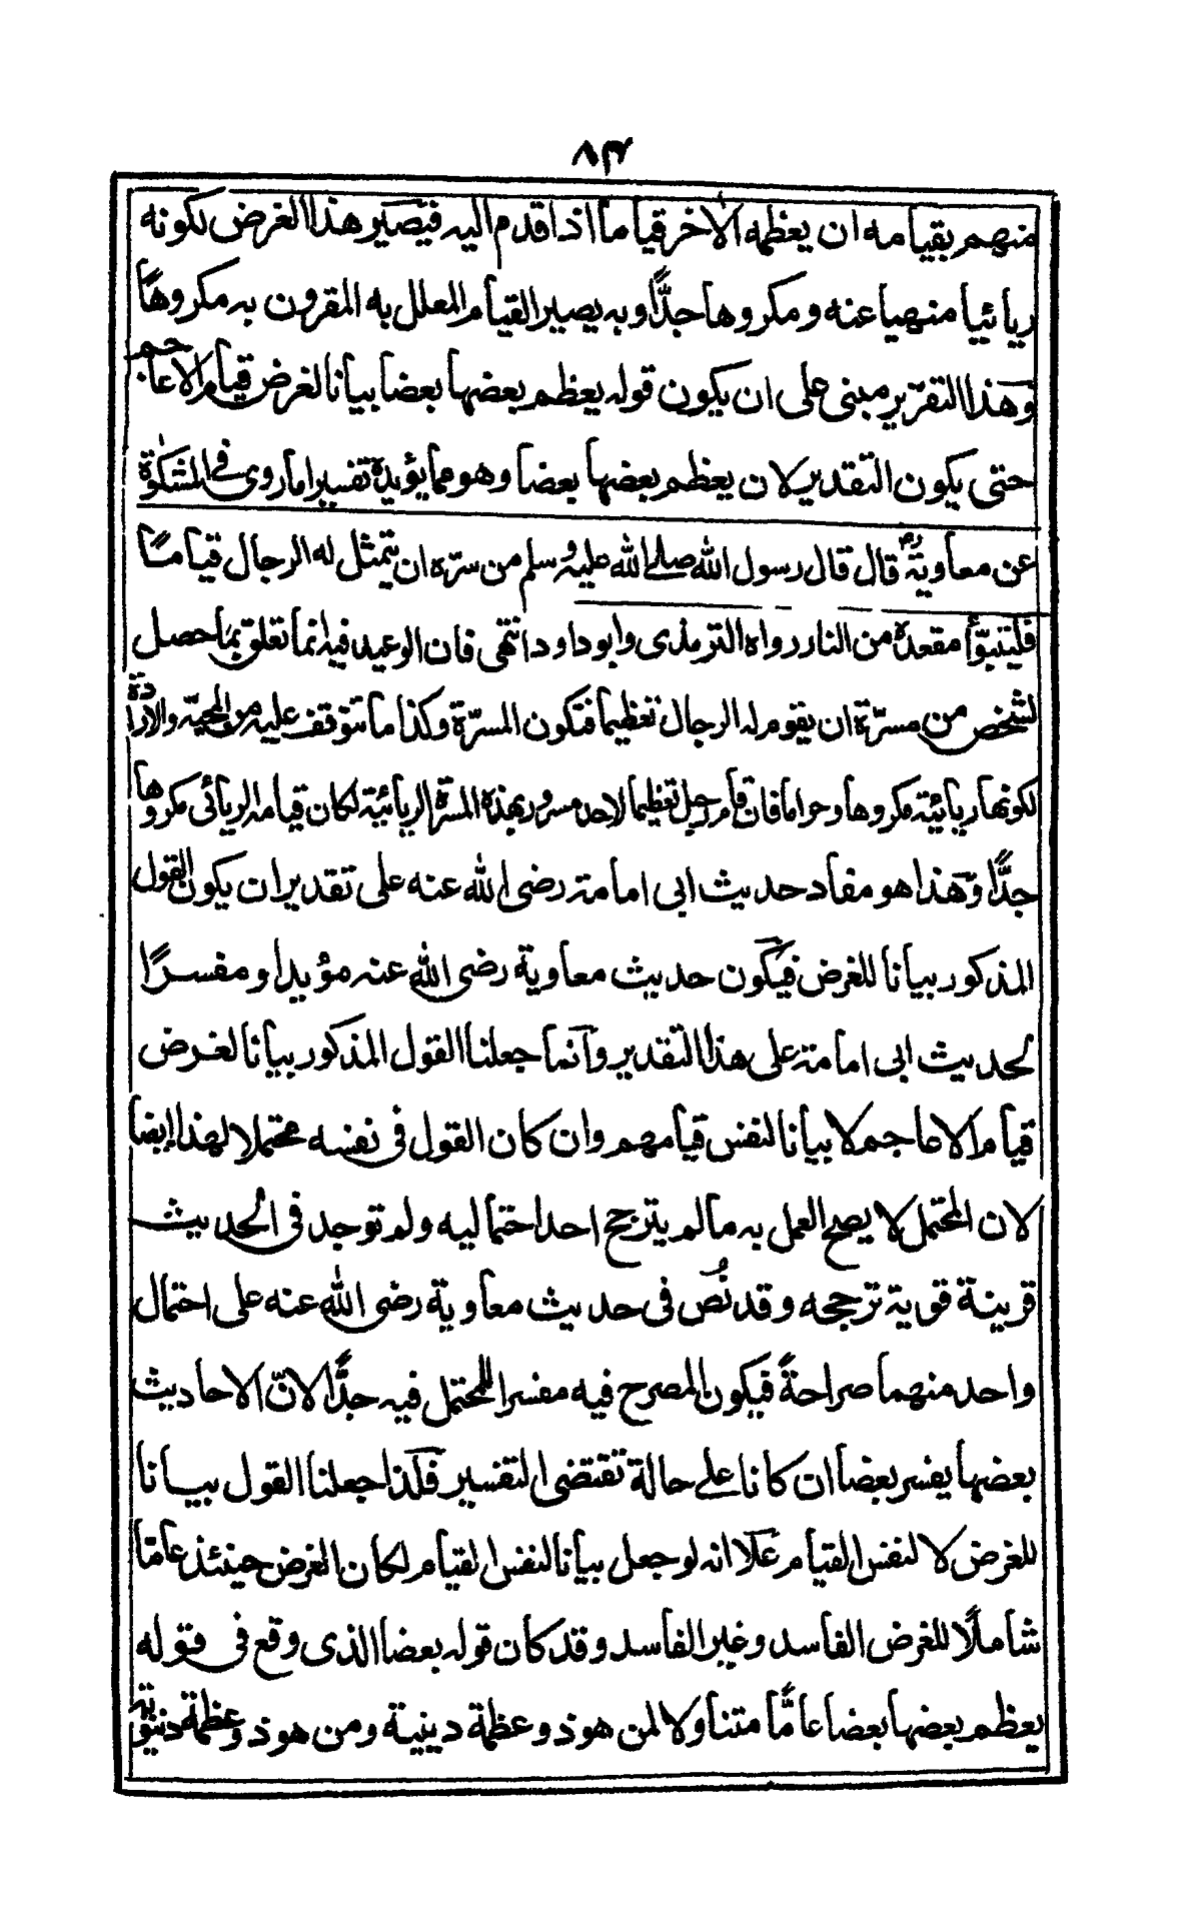 ۸۴
منهم بقيامه ان يعظمه الاٰخر قياما اذا قدم اليه فيصير هذا الغرض لكونه
ريائيا منهيا عنه و مكروها جدًّا و به يصير القيام المعلل به المقرون به مكروهًا
وهذا التقرير مبنى على ان يكون قوله يعظم بعضها بعضا بيانا لغرض قيام الاعاجم
حتى يكون التقدير لان يعظم بعضها بعضا وهو مما يؤيده تفسيرا ما روى فى المشكوٰة
عن معاوية رض قال قال رسول الله صلے الله عليه و سلم من سرّه ان يتمثل له الرجال قيامًا
فليتبوّأ مقعده من النار رواه الترمذى وابو داود انتهى فان الوعيد فيه انما تعلق بما حصل
لشخص من مسرّة ان يقوم له الرجال تعظيما فتكون المسرّة وكذا ما تتوقف عليه من المحبة والارادة
لكونها ريائية مكروها وحراما فان قام رجل تعظيما لاحد مسرور بهذه المسرة الريائية لكان قيامه الريائى مكروها
جدًّا وهذا هو مفاد حديث ابى امامة رضى الله عنه على تقدير ان يكون القول
المذكور بيانا للغرض فيكون حديث معاوية رضى الله عنه مؤيدا و مفسرًا
لحديث ابى امامة على هذا التقدير وانما جعلنا القول المذكور بيانا لغرض
قيام الاعاجم لا بيانا لنفس قيامهم وان كان القول فى نفسه محتملا لهذا ايضا
لان المحتمل لا يصح العمل به ما لم يترجح احد احتماليه ولم توجد فى الحديث
قرينة قوية ترجحه وقد نُص فى حديث معاوية رضى الله عنه على احتمال
واحد منهما صراحةً فيكون المصرح فيه مفسرا للمحتمل فيه جدًّا لانّ الاحاديث
بعضها يفسر بعضا ان كانا علے حالة تقتضى التفسير فلذا جعلنا القول بيانا
للغرض لا لنفس القيام علا انه لو جعل بيانا لنفس القيام لكان الغرض حينئذ عامّا
شاملًا للغرض الفاسد وغير الفاسد وقد كان قوله بعضا الذى وقع فى قوله
يعظم بعضها بعضا عامًّا متناولا لمن هو ذو عظمة دينية ومن هو ذو عظمة دنيوية